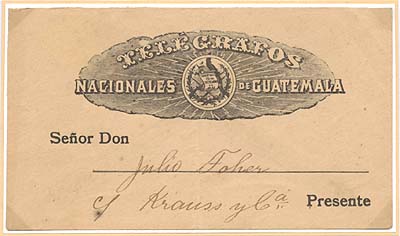 TELEGRAFOS
NACIONALES DE GUATEMALA
Señor Don
Julio
c/ Krauss y Cª. Presente